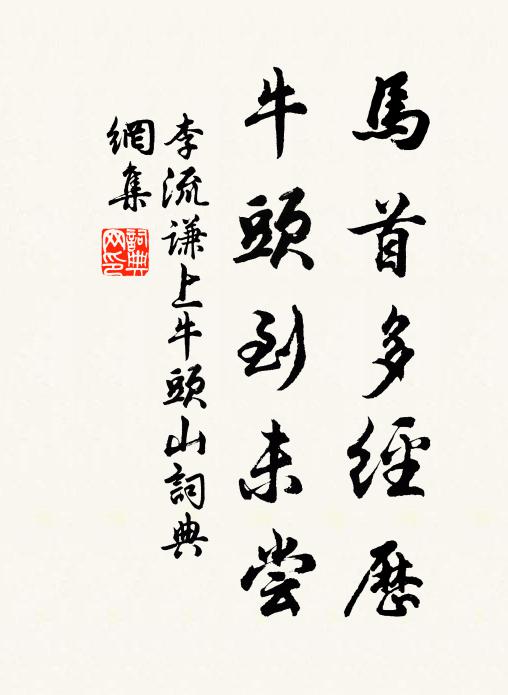 馬首多經歷
牛頭到未嘗
李流謙上牛頭山詞典
網集
詞典
网印